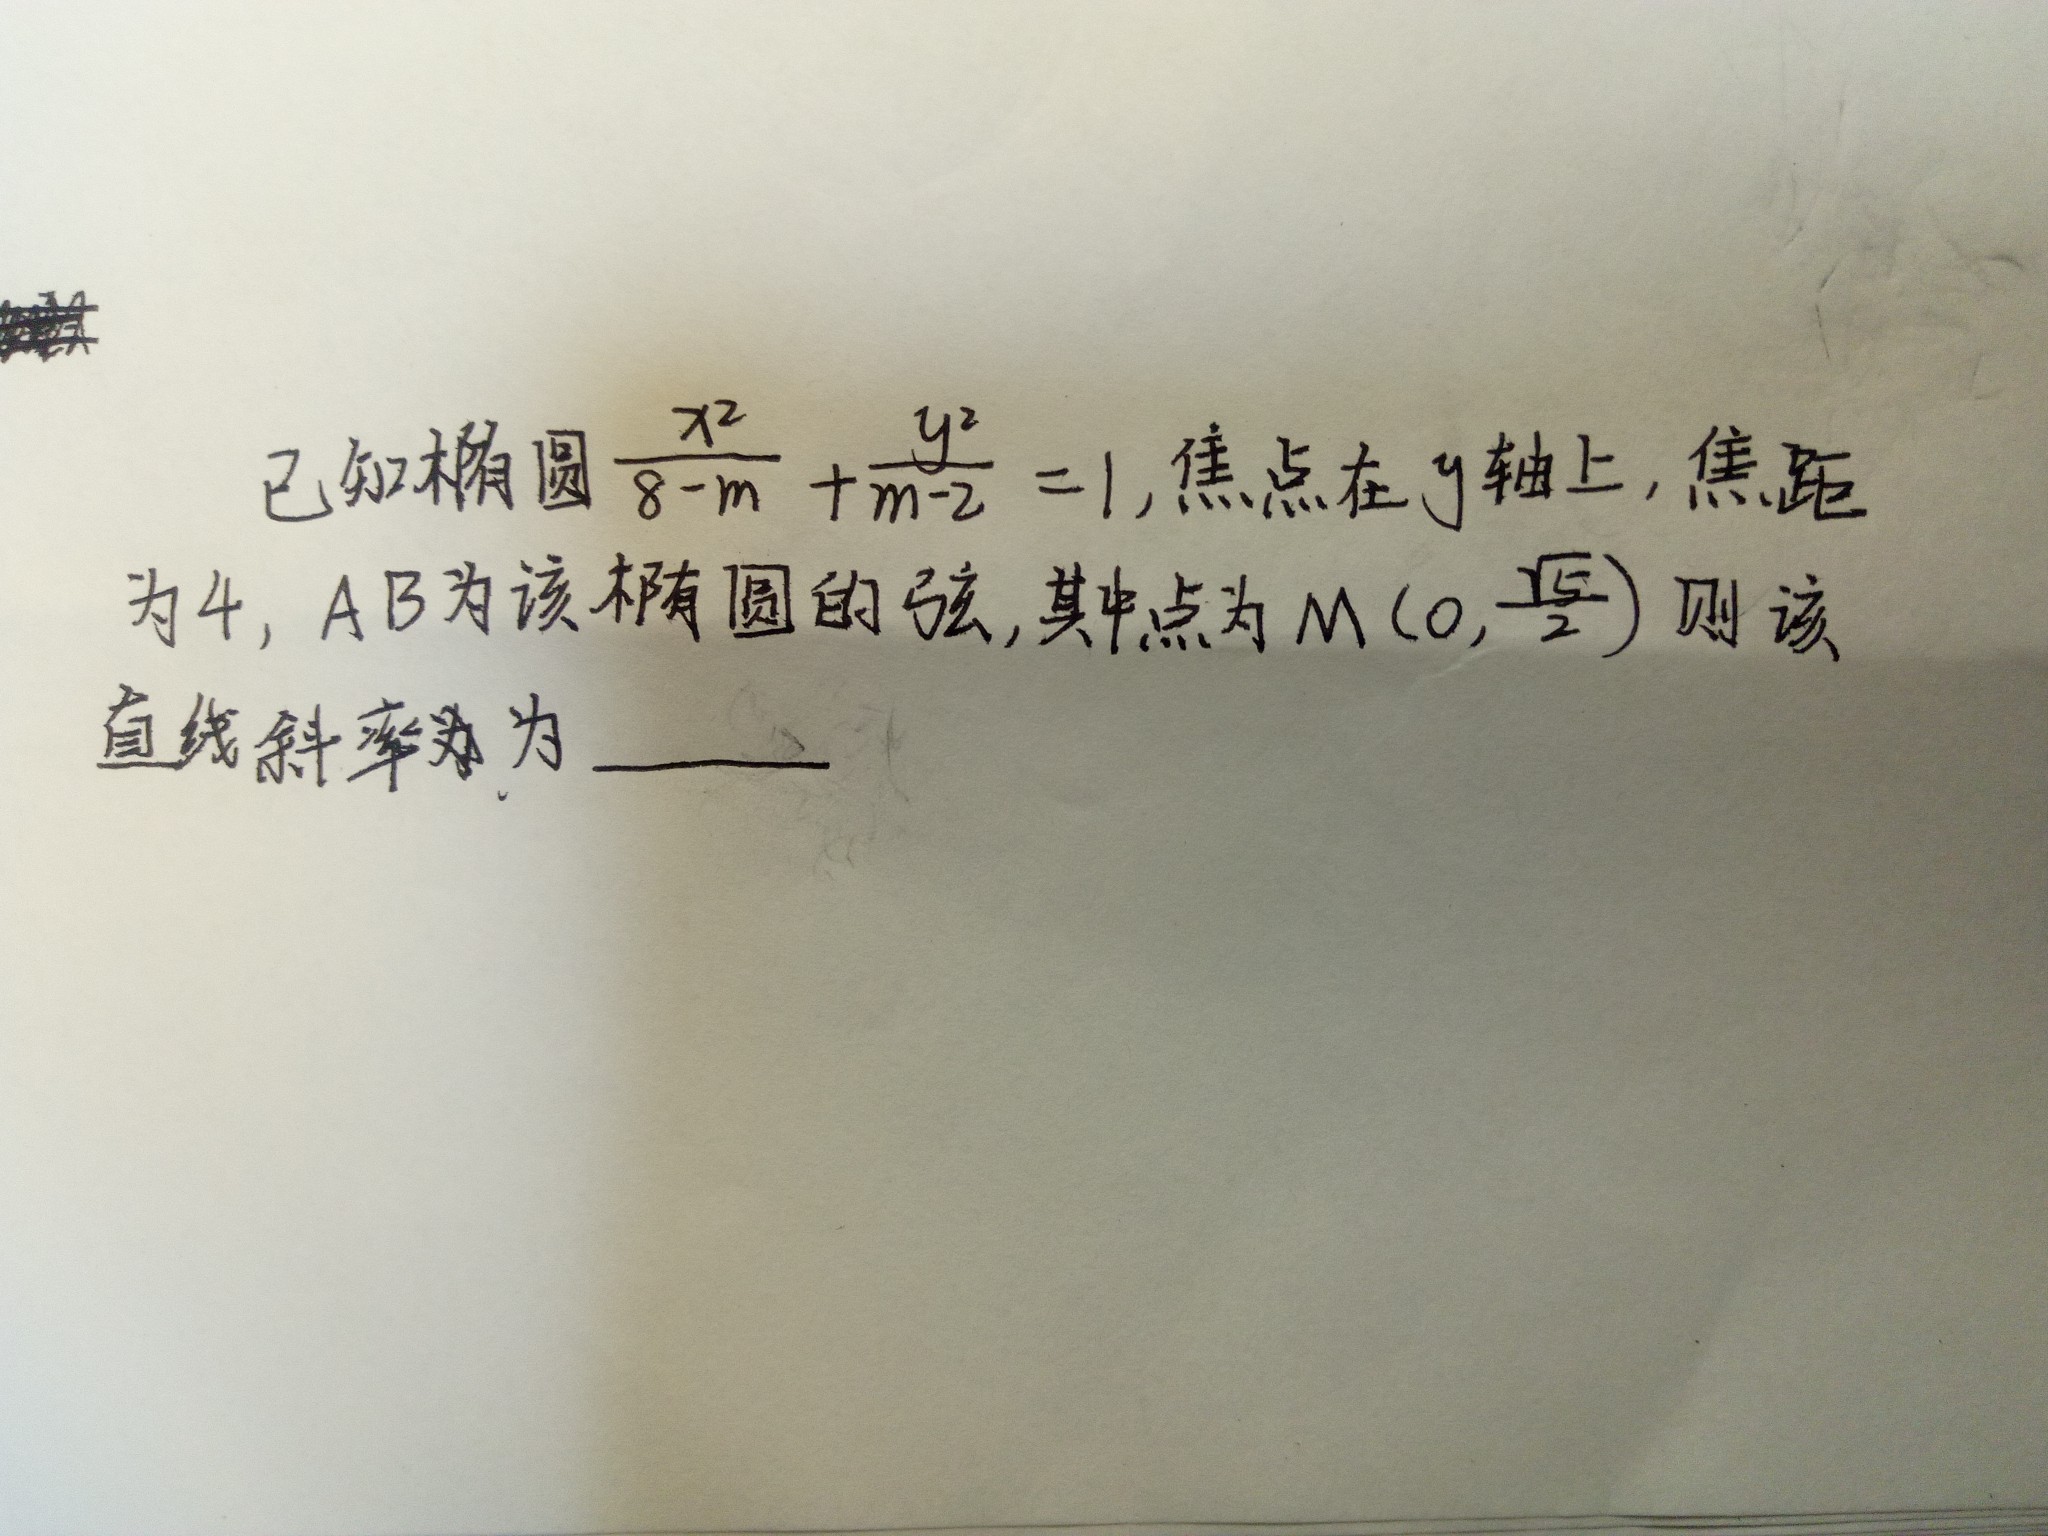 已知椭圆 x²/(8-m) + y²/(m-2) =1,焦点在y轴上,焦距
为4, AB为该椭圆的弦,其中点为M(0, √5/2) 则该
直线斜率为 为 ______